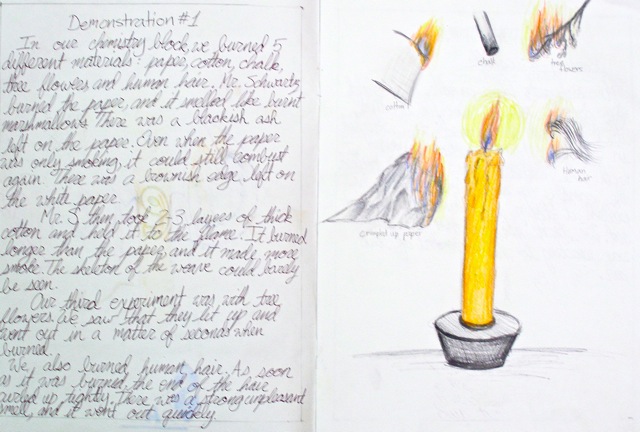 Demonstration #1
In our chemistry block, we burned 5
different materials: paper, cotton, chalk,
tree flowers and human hair. Mr. Schwartz
burned the paper, and it smelled like burnt
marshmallows. There was a blackish ash
left on the paper. Even when the paper
was only smoking, it could still combust
again. There was a brownish edge left on
the white paper.
Mr. S then took 2-3 layers of thick
cotton and held it to the flame. It burned
longer than the paper, and it made more
smoke. The skeleton of the weave could barely
be seen.
Our third experiment was with tree
flowers. We saw that they lit up and
went out in a matter of seconds when
burned.
We also burned human hair. As soon
as it was burned, the end of the hair
curled up tightly. There was a strong unpleasant
smell, and it went out quickly.
cotton
chalk
tree
flowers
Human
hair
Crumpled up paper